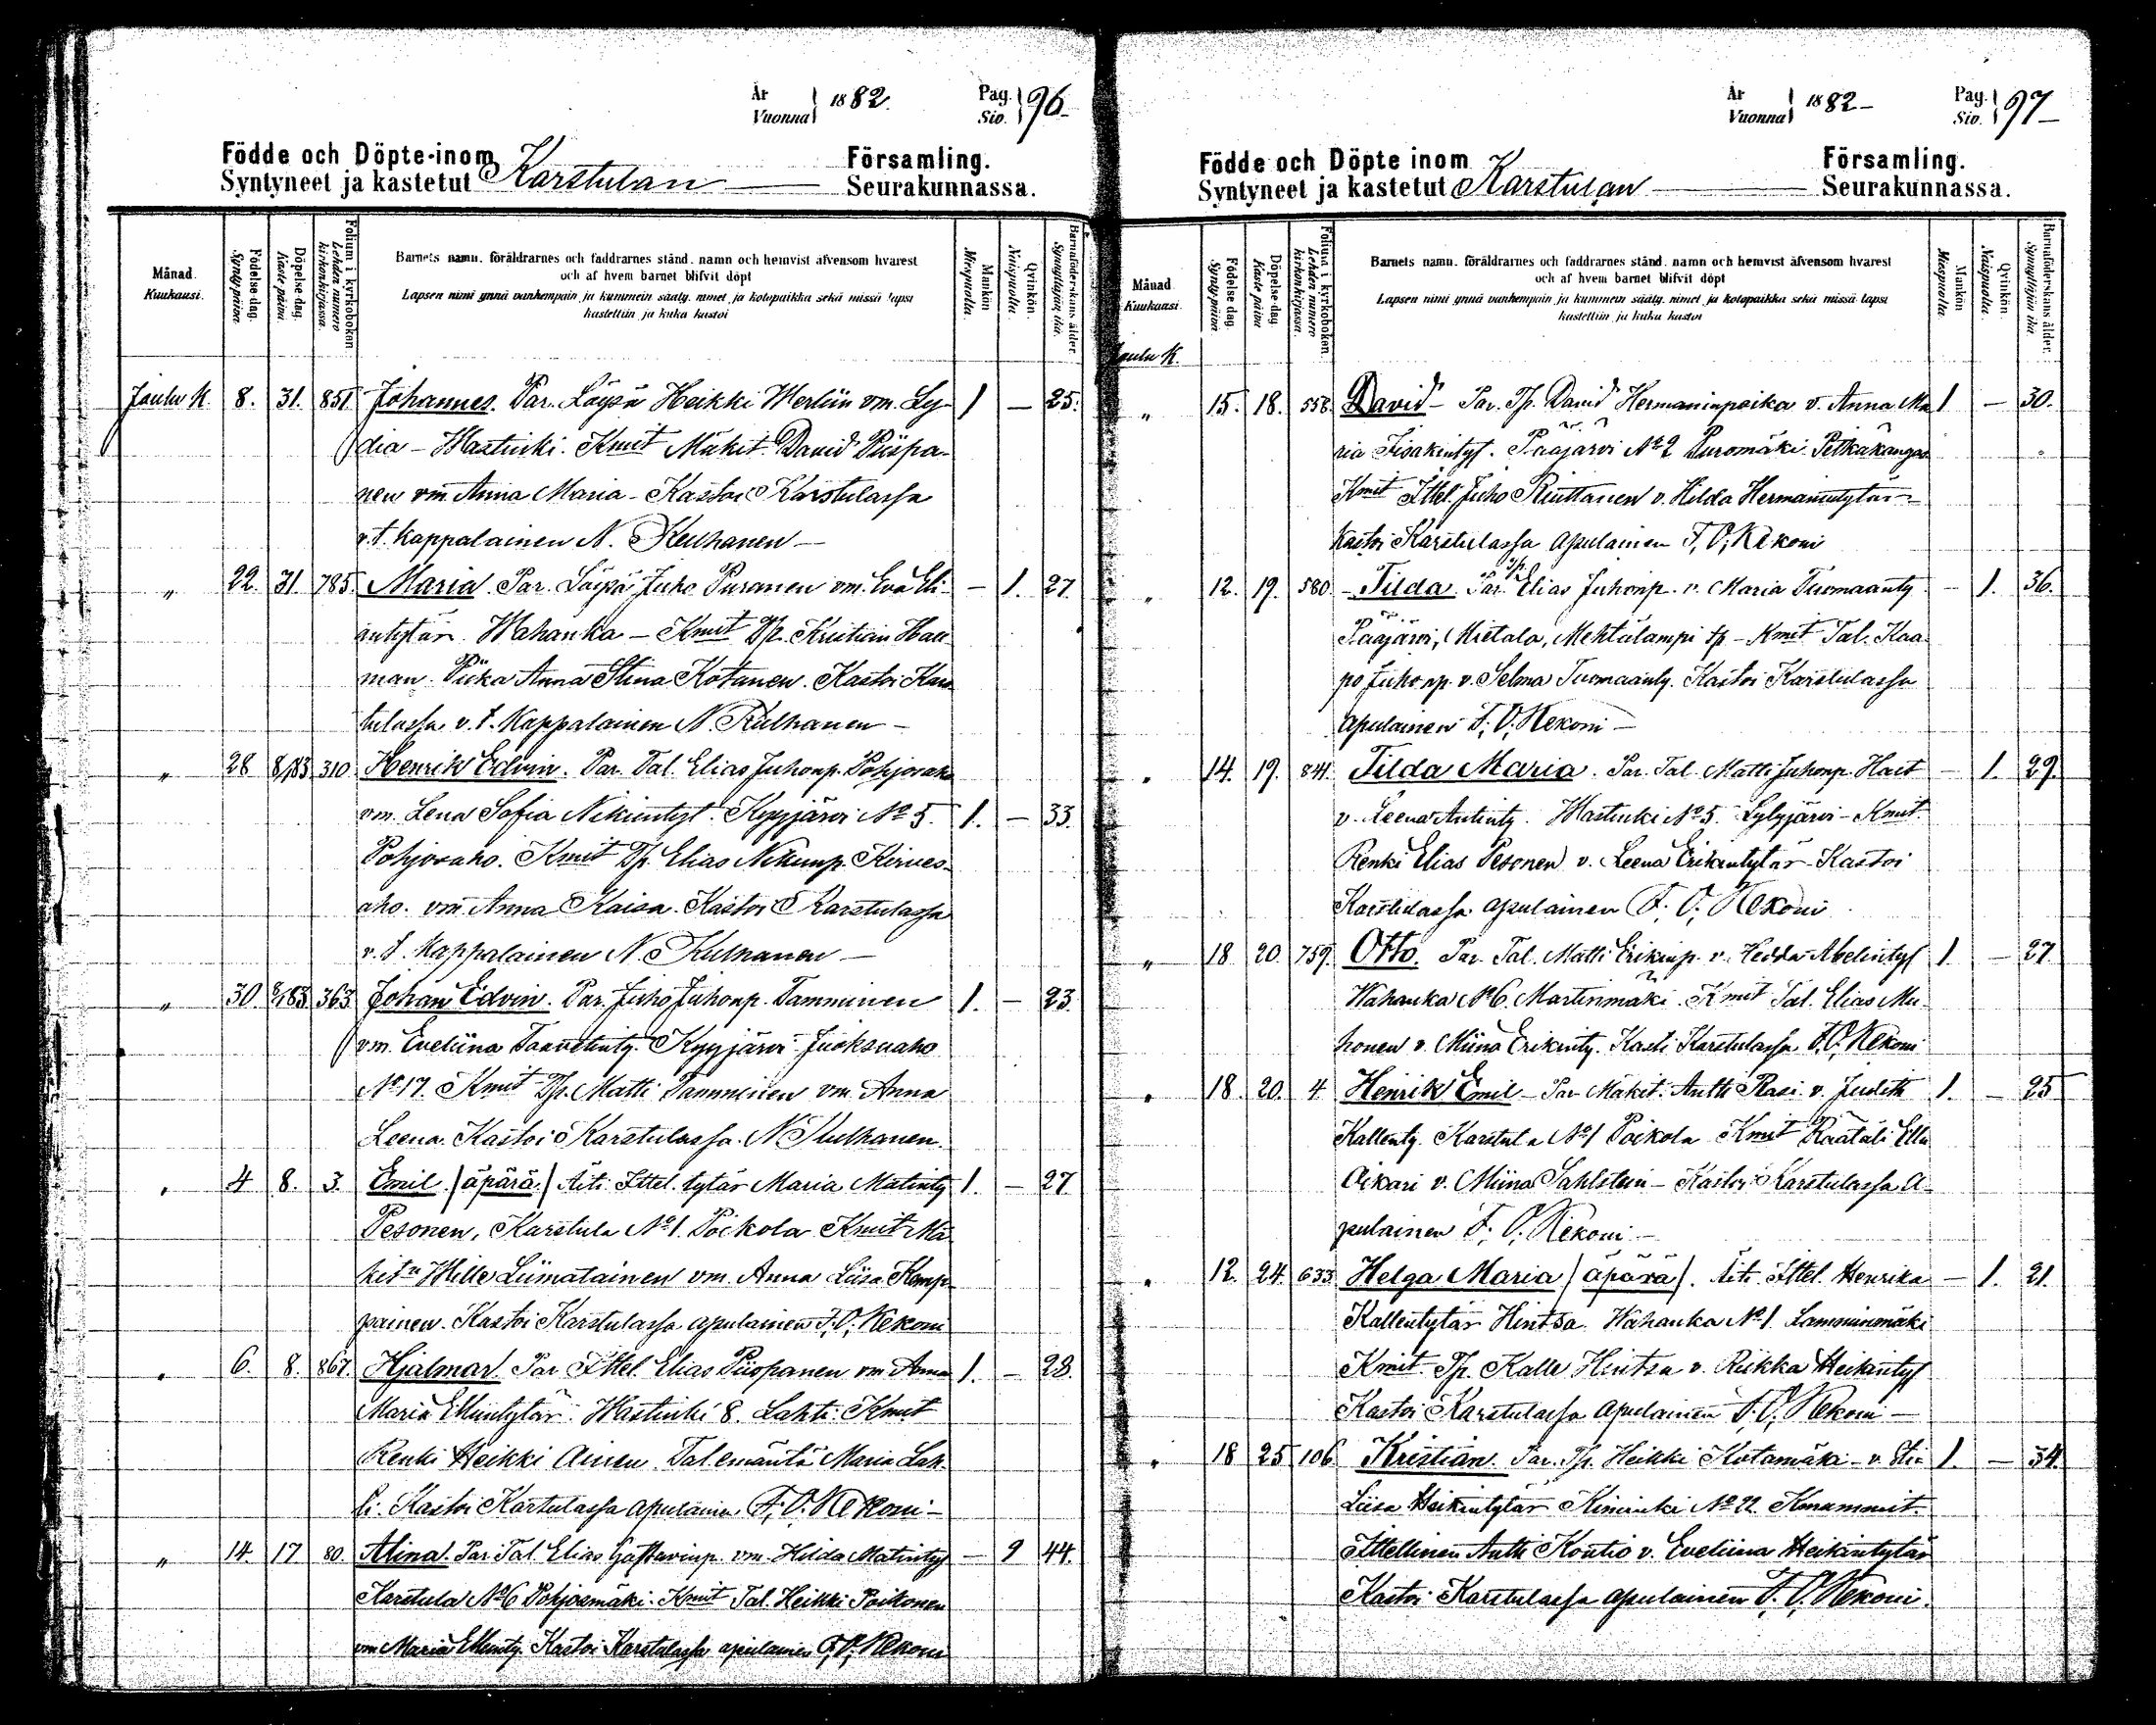 År
Vuonna } 1882.
Pag.
Sio. } 96
Födde och Döpte inom Församling.
Syntyneet ja kastetut Karstulan Seurakunnassa.
Månad. Kuukausi.
Födelse-dag. Synty-päivä.
Döpelse-dag. Kaste päivä
Folium i kyrkoboken. Lehden numero kirkonkirjassa.
Barnets namn, föräldrarnes och faddrarnes stånd, namn och hemvist äfvensom hvarest
och af hvem barnet blifvit döpt
Lapsen nimi ynnä vanhempain ja kummein sääty, nimet ja kotopaikka sekä missä lapsi
kastettiin ja kuka kastoi
Mankön Miespuolia
Qvinkön. Naispuolia.
Barnaföderskans ålder. Synnyttäjän ikä.
Joulu K. 8. 31. 851 Johannes. Par. Löysä Heikki Merliin vm. Ly- 1 — 25.
dia - Wastinki. Kmit Mäkit. David Piispa-
nen vm. Anna Maria - Kastoi Karstulassa
v.t. Kappalainen N. Kulhanen —
„ 22. 31. 785. Maria. Par. Löysä Juho Puranen vm. Eva Eli- — 1. 27.
äntytär. Wahanka - Kmit Tp. Kristian Hall-
man. Piika Anna Stina Kotanen. Kastoi Kars-
tulassa v.t. Kappalainen N. Kulhanen -
„ 28 8/1 83 310 Henrik Edvin. Par. Tal. Elias Juhonp. Pohjosaho
vm. Lena Sofia Nikuntyt. Kyyjärvi No 5. 1. — 33.
Pohjosaho. Kmit Tp. Elias Nikunp. Kirves-
aho. vm. Anna Kaisa. Kastoi Karstulassa
v.t. Kappalainen N. Kulhanen —
„ 30. 8/1 83. 363 Johan Edvin. Par. Juho Juhonp. Tamminen 1. — 23.
vm. Eveliina Taavetinty. Kyyjärvi Juoksuaho
No 17. Kmit Tp. Matti Tamminen vm. Anna
Leena. Kastoi Karstulassa. N. Kulhanen.
„ 4 8. 3. Emil /äpärä/ Äiti Ittel. tytär Maria Matinty 1. — 27.
Pesonen, Karstula No 1. Poikola Kmit Mä
kitu Wille Liimatainen vm. Anna Liisa Kemp-
painen. Kastoi Karstulassa apulainen F. O. Rekoni
„ 6. 8. 867. Hjalmar. Par Ittel. Elias Piispanen vm Anna 1. — 28.
Maria Ellintytär. Wastinki 8. Lahti. Kmit
Renki Heikki Ainen. Tal emäntä Maria Lah-
ti. Kastoi Karstulassa apulainen F. O. Rekoni -
„ 14. 17 80. Alina. Par. Tal. Elias Gustavinp. vm. Hilda Matintyt — 1 44.
Karstula No 6 Pohjosmäki. Kmit Tal. Heikki Poikonen
vm Maria Ellinty. Kastoi Karstulassa apulainen F. O. Rekoni
År
Vuonna } 1882 -
Pag.
Sio. } 97 -
Födde och Döpte inom Församling.
Syntyneet ja kastetut Karstulan Seurakunnassa.
Månad Kuukausi.
Födelse-dag. Synty-päivä.
Döpelse-dag Kaste päivä
Folium i kyrkoboken. Lehden numero kirkonkirjassa.
Barnets namn, föräldrarnes och faddrarnes stånd, namn och hemvist äfvensom hvarest
och af hvem barnet blifvit döpt
Lapsen nimi ynnä vanhempain ja kummein sääty, nimet ja kotopaikka sekä missä lapsi
kastettiin ja kuka kastoi
Mankön Miespuolia.
Qvinkön. Naispuolia.
Barnaföderskans ålder. Synnyttäjän ikä.
Joulu K.
„ 15. 18. 558. David - Par. Tp. David Hermaninpoika v. Anna Ma 1 — 30.
ria Iisakintyt. Pääjärvi No 2 Puromäki. Pitkäkangas
Kmit Ittel. Juho Riuttanen v. Hilda Hermannintytär -
kastoi Karstulassa apulainen F. O. Rekoni
„ 12. 19. 580. - Tilda. Par. Tp. Elias Juhonp. v. Maria Tuomaanty — 1. 36.
Pääjärvi, Mietala, Mehtälampi tp - Kmit Tal. Kaa
po Juhonp. v. Selma Tuomaanty. Kastoi Karstulassa
apulainen F. O. Rekoni -
„ 14. 19. 841. Tilda Maria. Par. Tal. Matti Juhonp. Hait — 1. 29.
v. Leena Antinty. Wastinki No 5. Lylyjärvi - Kmit.
Renki Elias Pesonen v. Leena Erikintytär Kastoi
Karstulassa apulainen F. O. Rekoni
„ 18 20. 759. Otto. Par. Tal. Matti Erikinp. v. Hedda Abelintyt 1. — 27.
Wahanka No 6. Martinmäki. Kmit Tal. Elias Mu-
honen v. Miina Erikinty. Kasti Karstulassa F. O. Rekoni
„ 18. 20. 4 Henrik Emil - Par Mäkit. Antti Rasi v. Judith 1. — 25
Kallenty. Karstula No 1 Poikola Kmit Räätäli Elli
Oikari v. Miina Sahlstein - Kastoi Karstulassa a-
pulainen F. O. Rekoni -
„ 12. 24. 633 Helga Maria /äpärä/. Äiti Ittel. Henrika — 1. 21.
Kallentytär Hintsa. Wahanka No 1. Lamminmäki
Kmit. Tp. Kalle Hintsa v. Riikka Heikintyt
Kastoi Karstulassa apulainen F. O. Rekoni -
„ 18 25 106. Kristian. Par. Tp. Heikki Kotamäki - v. 1. — 34.
Liisa Heikintytär Kiminki No 22. Kummit
Ittellinen Antti Kontio v. Eveliina Heikintytär
Kastoi Karstulassa apulainen F. O. Rekoni.